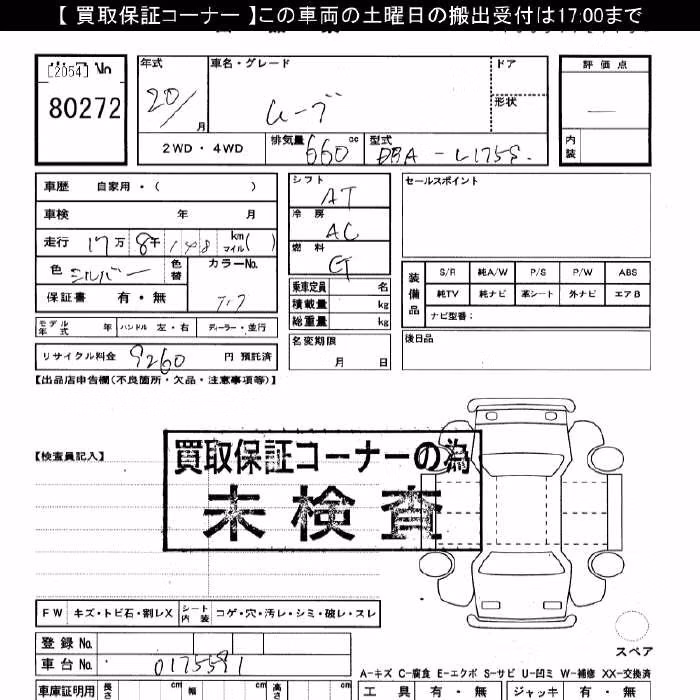 【 買取保証コーナー 】この車両の土曜日の搬出受付は17:00まで
[2054] No
80272
年式
20/
月
車名・グレード
ムーブ
ドア
形状
評 価 点
—
内装
2WD ・ 4WD
排気量 660 cc
型式 DBA-L175S.
車歴 自家用・( )
車検 年 月
走行 17万 8千 148 km マイル( )
色 シルバー 色替 カラーNo. T17
保証書 有・無
モデル年式 年 ハンドル 左・右 ディーラー・並行
リサイクル料金 9260 円 預託済
シフト AT
冷 房 AC
燃 料 G
乗車定員 名
積載量 kg
総重量 kg
名変期限
月 日
セールスポイント
装備品
S/R 純A/W P/S P/W ABS
純TV 純ナビ 革シート 外ナビ エアB
ナビ型番：
後日品
【出品店申告欄(不良箇所・欠品・注意事項等)】
【検査員記入】
買取保証コーナーの為
未検査
FW キズ・トビ石・割レX シート内装 コゲ・穴・汚レ・シミ・破レ・スレ
登録 No.
車台 No. 0175591
車庫証明用 長さ cm 幅 cm 高さ cm
スペア
A-キズ C-腐食 E-エクボ S-サビ U-凹ミ W-補修 XX-交換済
工 具 有・無 ジャッキ 有・無